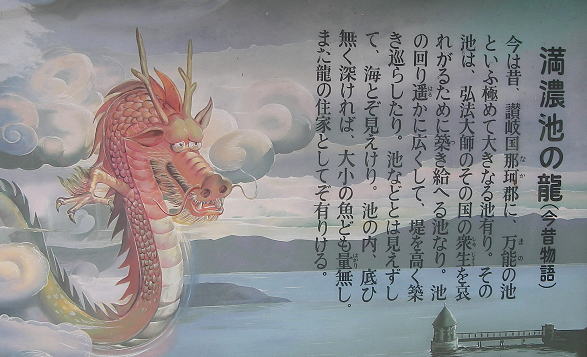 満濃池の龍（今昔物語）
今は昔、讃岐国那珂郡に、万能の池
といふ極めて大きなる池有り。その
池は、弘法大師のその国の衆生を哀
れがるために築き給へる池なり。池
の回り遥かに広くして、堤を高く築
き巡らしたり。池などとは見えずし
て、海とぞ見えけり。池の内、底ひ
無く深ければ、大小の魚ども量無し。
また龍の住家としてぞ有りける。